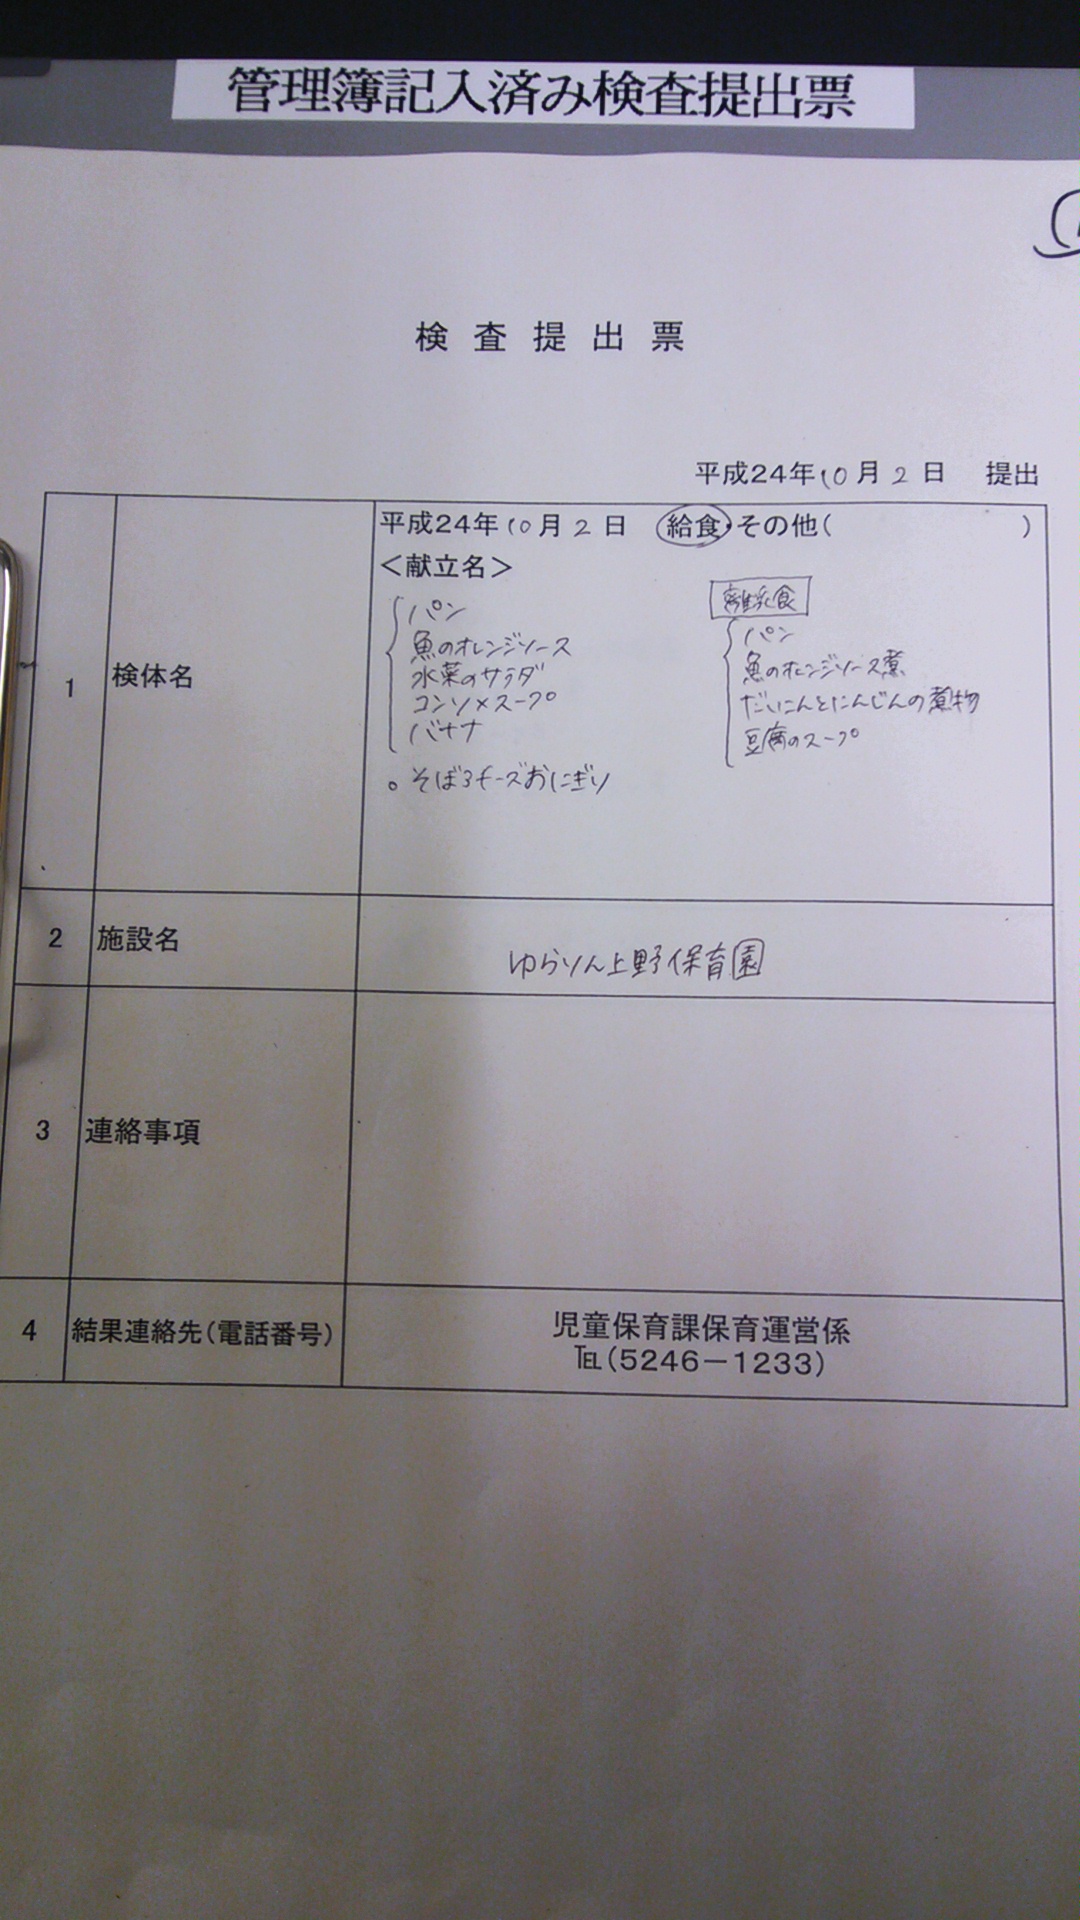 管理簿記入済み検査提出票
検査提出票
平成24年10月2日 提出
1 検体名
平成24年10月2日 給食・その他( )
<献立名>
パン
魚のオレンジソース
水菜のサラダ
コンソメスープ
バナナ
。そぼろチーズおにぎり
離乳食
パン
魚のオレンジソース煮
だいこんとにんじんの煮物
豆腐のスープ
2 施設名 ゆらりん上野保育園
3 連絡事項
4 結果連絡先(電話番号)
児童保育課保育運営係
℡(5246－1233)